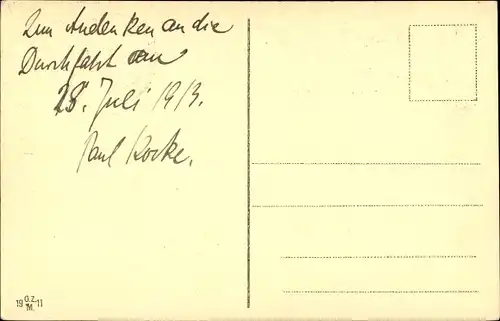 Zum Andenken an die
Durchfahrt am
28. Juli 1913.
Paul
19 G.Z. 11
M.